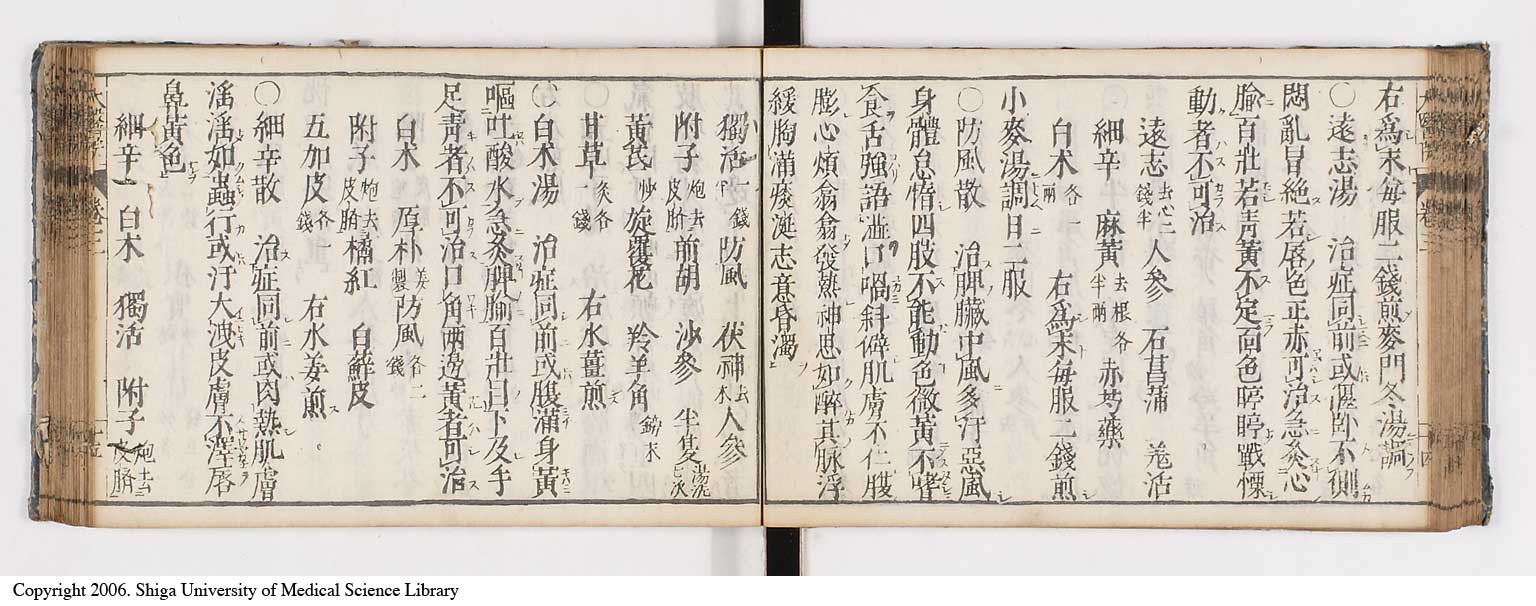 右爲末毎服二錢煎麥門冬湯調
○遠志湯　治症同前或偃卧不側
悶亂冒絶若唇色正赤可治急灸心
腧百壯若青黄不定面色㽹㽹戰慄
動者不可治
遠志去心二錢半人參　石菖蒲　羗活
細辛　麻黄去根各半兩　赤芍藥
白术各一兩　右爲末毎服二錢煎
小麥湯調日二服
○防風散　治脾臟中風多汗惡風
身體怠惰四肢不能動色微黄不嗜
食舌強語澁口喎斜僻肌膚不仁腹
膨心煩翕翕發熱神思如醉其脉浮
緩胸滿痰涎志意昏濁
獨活一錢半防風　茯神去木人參
附子炮去皮臍前胡　沙參　半夏湯洗七次
黄芪炒旋覆花　羚羊角鎊末
甘草炙各一錢　右水薑煎
○白术湯　治症同前或腹滿身黄
嘔吐酸水急灸脾腧百壯目下及手
足青者不可治口角兩邊黄者可治
白术　厚朴姜製防風各二錢
附子炮去皮臍橘紅　白鮮皮
五加皮各一錢　右水姜煎
○細辛散　治症同前或肉熱肌膚
淫淫如蟲行或汗大洩皮膚不澤唇
鼻黄色
細辛　白木　獨活　附子炮去皮臍
Copyright 2006. Shiga University of Medical Science Library